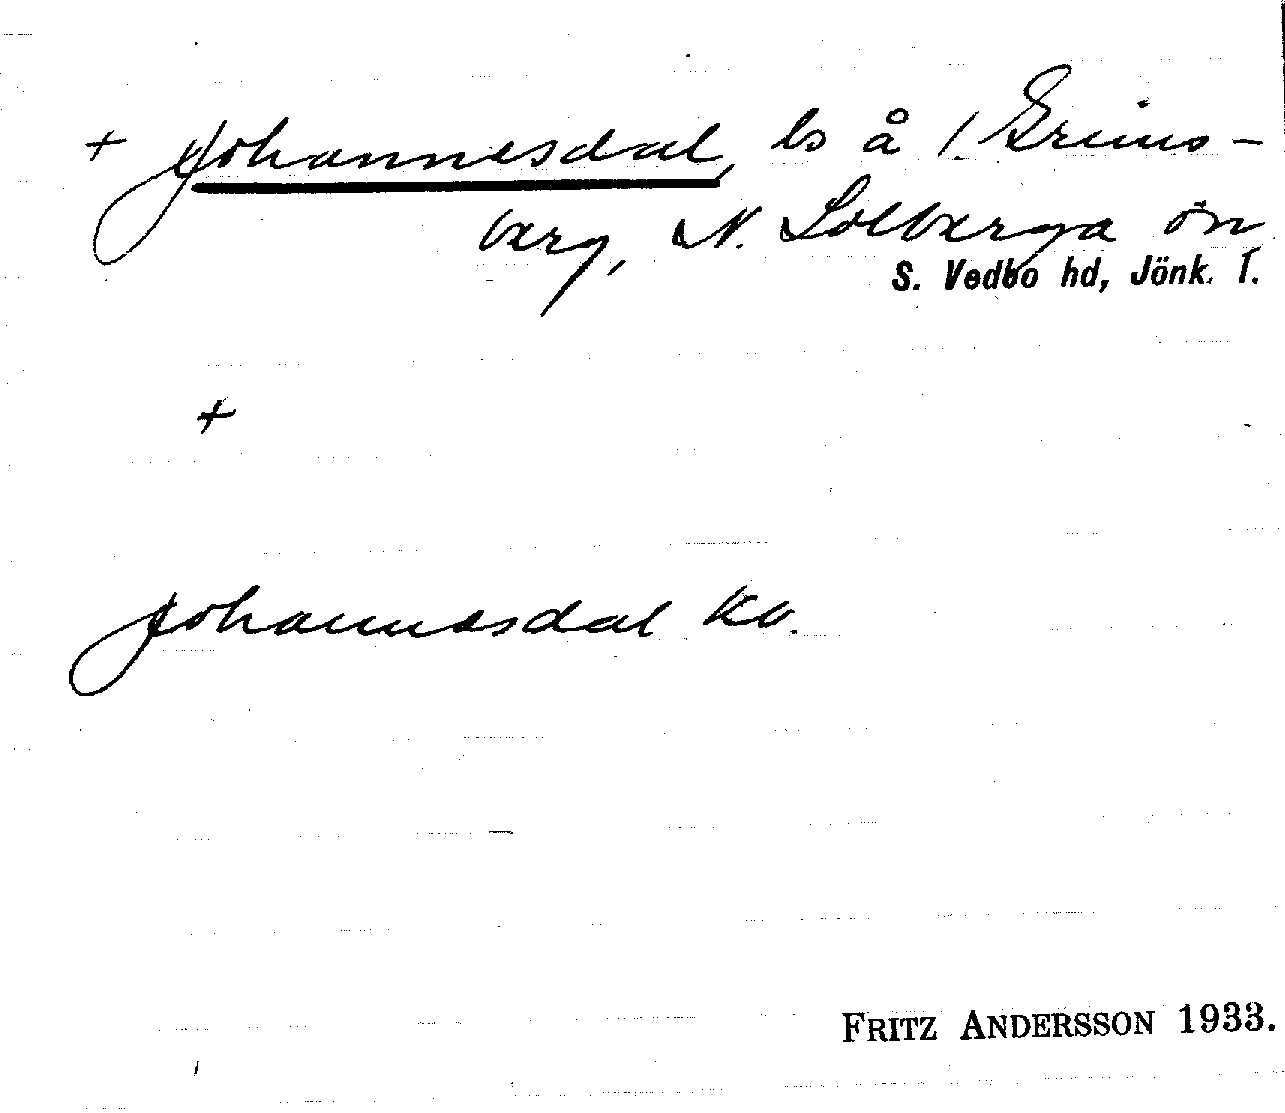 + Johannesdal, ls å /. Grims-
berg, N. Solberga sn
S. Vedbo hd, Jönk. l.
+
Johannesdal Kv.
FRITZ ANDERSSON 1933.